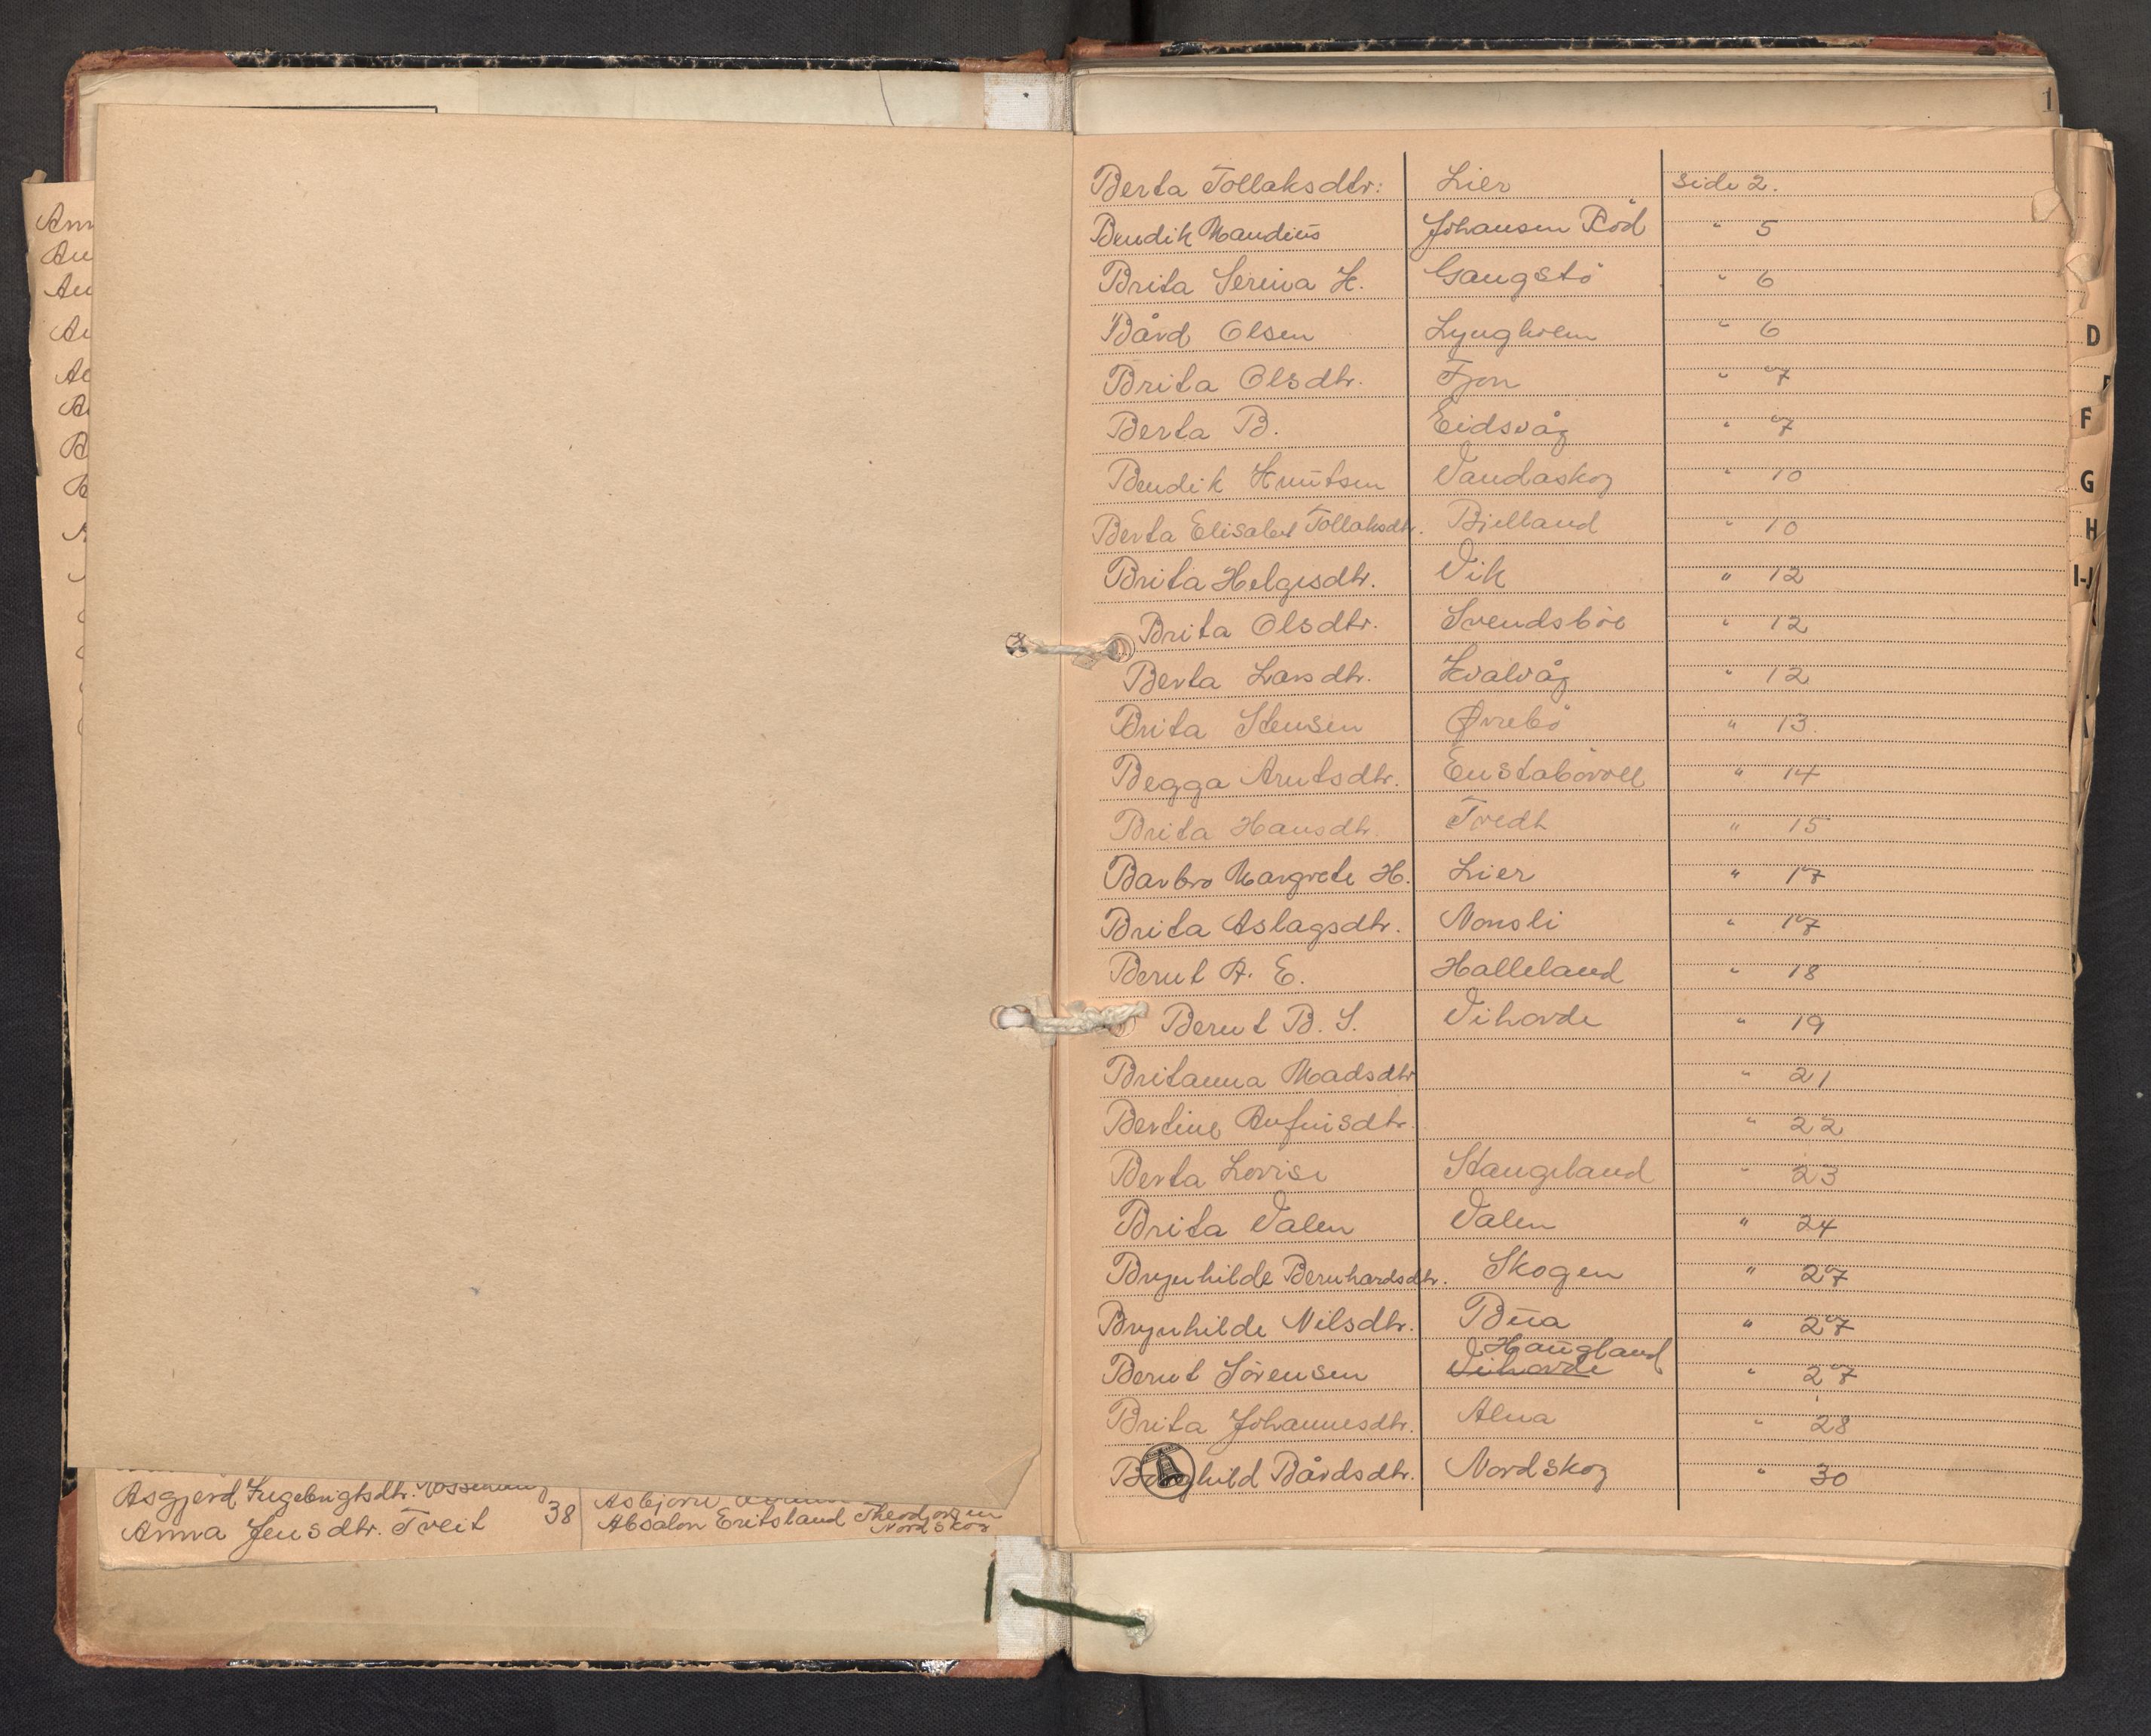 Ann
Au
Au
Asgjerd Ingebrigtsdtr.
Anna Jensdtr. Tveit 38
Asbjørn
Absalon Eritsland Theodjorsen
Nordskog
1
Berta Tollaksdtr: Lier side 2.
Bendik Mandius Johansen Röd " 5
Brita Serina H. Gaugstö " 6
Bård Olsen Lyngholm " 6
Brita Olsdtr. Fjon " 7
Berta B. Eidsvåg " 7
Bendik Knutsen Vandaskog " 10
Berta Elisabet Tollaksdtr. Bielland " 10
Brita Helgesdtr. Vik " 12
Brita Olsdtr. Svendsböe " 12
Berta Larsdtr. Kvalvåg " 12
Brita Stensen Øvrebö " 13
Begga Arntsdtr. Eustabövoll " 14
Brita Hansdtr. Tvedt " 15
Barbro Margrete H. Lier " 17
Brita Aslagsdtr. Nonsli " 17
Bernt A. E. Halleland " 18
Bernt B. S. Vihovde " 19
Britanna Madsdtr " 21
Bertine Anfinsdtr. " 22
Berta Lovise Stangeland " 23
Brita Valen Valen " 24
Brynhilde Bernhardsdtr. Skogen " 27
Brynhilde Nilsdtr. Bua " 27
Haugland
Bernt Sörensen Vihovde " 27
Brita Johannesdtr. Alna " 28
Borghild Bårdsdtr. Nordskog " 30
D
F
G
H
I-J